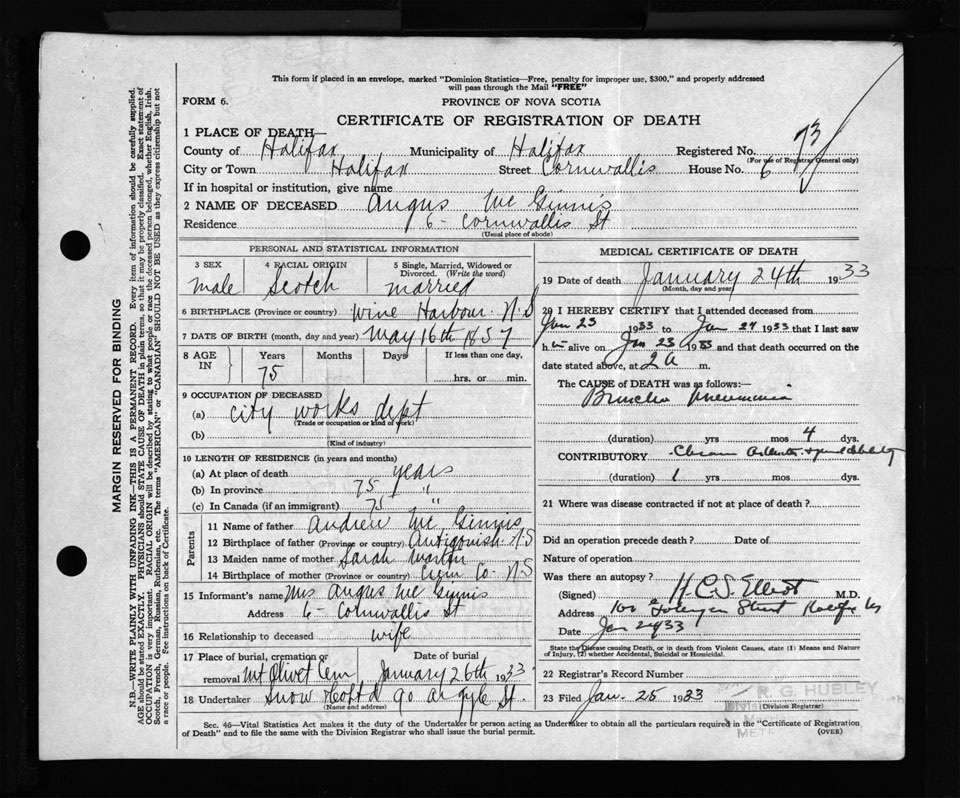 This form if placed in an envelope, marked "Dominion Statistics—Free, penalty for improper use, $300," and properly addressed
will pass through the Mail "FREE"
FORM 6. PROVINCE OF NOVA SCOTIA
CERTIFICATE OF REGISTRATION OF DEATH
1 PLACE OF DEATH—
County of Halifax Municipality of Halifax Registered No. 73
(For use of Registrar General only)
City or Town Halifax Street Cornwallis House No. 6
If in hospital or institution, give name
2 NAME OF DECEASED Angus Mc Ginnis
Residence 6 - Cornwallis St
(Usual place of abode)
PERSONAL AND STATISTICAL INFORMATION
3 SEX 4 RACIAL ORIGIN 5 Single, Married, Widowed or
Divorced. (Write the word)
male Scotch married
6 BIRTHPLACE (Province or country) Wine Harbour N.S
7 DATE OF BIRTH (month, day and year) May 16th 1857
8 AGE IN Years Months Days If less than one day,
75 hrs. or min.
9 OCCUPATION OF DECEASED
(a) City works dept
(Trade or occupation or kind of work)
(b)
(Kind of industry)
10 LENGTH OF RESIDENCE (in years and months)
(a) At place of death years
(b) In province 75 "
(c) In Canada (if an immigrant) 75 "
Parents
11 Name of father Andrew Mc Ginnis
12 Birthplace of father (Province or country) Antigonish. N.S
13 Maiden name of mother Sarah
14 Birthplace of mother (Province or country) Co- N.S
15 Informant's name Mrs Angus Mc Ginnis
Address 6 - Cornwallis St
16 Relationship to deceased wife
17 Place of burial, cremation or Date of burial
removal Mt Olivet Cem January 26th 1933
18 Undertaker Snow & Co Ltd 90 Argyle St.
(Name and address)
MEDICAL CERTIFICATE OF DEATH
19 Date of death January 24th 1933
(Month, day and year)
20 I HEREBY CERTIFY that I attended deceased from
Jan 23 1933 to Jan 24 1933 that I last saw
h im alive on Jan 23 1933 and that death occurred on the
date stated above, at 2 a m.
The CAUSE of DEATH was as follows:—
Broncho Pneumonia
(duration) yrs mos 4 dys.
CONTRIBUTORY
(duration) 1 yrs mos dys.
21 Where was disease contracted if not at place of death?
Did an operation precede death? Date of
Nature of operation
Was there an autopsy?
(Signed) H.C.S. Elliot M.D.
Address Street Halifax NS
Date Jan 24 1933
State the Disease causing Death, or in death from Violent Causes, state (1) Means and Nature
of Injury, (2) whether Accidental, Suicidal or Homicidal.
22 Registrar's Record Number
23 Filed Jan. 25 1933 R. G. HUBLEY
(Division Registrar)
Sec. 46—Vital Statistics Act makes it the duty of the Undertaker or person acting as Undertaker to obtain all the particulars required in the "Certificate of Registration
of Death" and to file the same with the Division Registrar who shall issue the burial permit. (OVER)
MARGIN RESERVED FOR BINDING
N.B.—WRITE PLAINLY WITH UNFADING INK—THIS IS A PERMANENT RECORD. Every item of information should be carefully supplied.
AGE should be stated EXACTLY. PHYSICIANS should STATE CAUSE OF DEATH in plain terms, so that it may be properly classified. Exact statement of
OCCUPATION is very important. RACIAL ORIGIN will be described by stating to what people or race the deceased person belonged, whether English, Irish,
Scotch, French, German, Russian, Ruthenian, etc. The terms "AMERICAN" or "CANADIAN" SHOULD NOT BE USED as they express citizenship but not
a race or people. Fee instructions on back of Certificate.